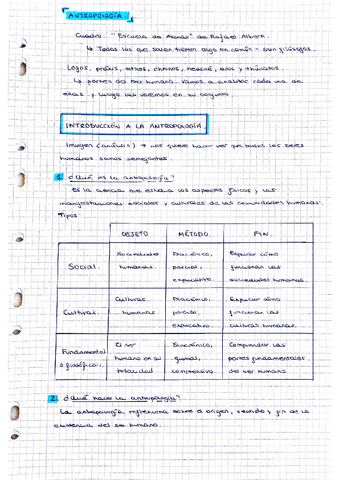 ANTROPOLOGÍA
Cuadro: "Escuela de Atenas" de Rafael Alberti.
↳ Todos los que salen tienen algo en común - son filósofos.
Logos, pathos, ethos, chronos, eros y thánatos
↳ partes del ser humano. Vamos a analizar cada una de
ellas y luego las veremos en su conjunto.
INTRODUCCIÓN A LA ANTROPOLOGÍA
Imagen (análisis) → nos quiere hacer ver que todos los seres
humanos somos semejantes.
1. ¿Qué es la antropología?
Es la ciencia que estudia los aspectos físicos y las
manifestaciones sociales y culturales de las comunidades humanas.
Tipos:
OBJETO MÉTODO FIN
Social. Sociedades humanas. parcial, explicativo. Explicar cómo funcionan las sociedades humanas.
Cultural. Culturas humanas. Diacrónico, parcial, explicativo. Explicar cómo funcionan las culturas humanas.
Fundamental o filosófica. El ser humano en su totalidad Sincrónico, global, comprensivo. Comprender las partes fundamentales del ser humano
2. ¿Qué hace la antropología?
La antropología reflexiona sobre el origen, sentido y fin de la
existencia del ser humano.